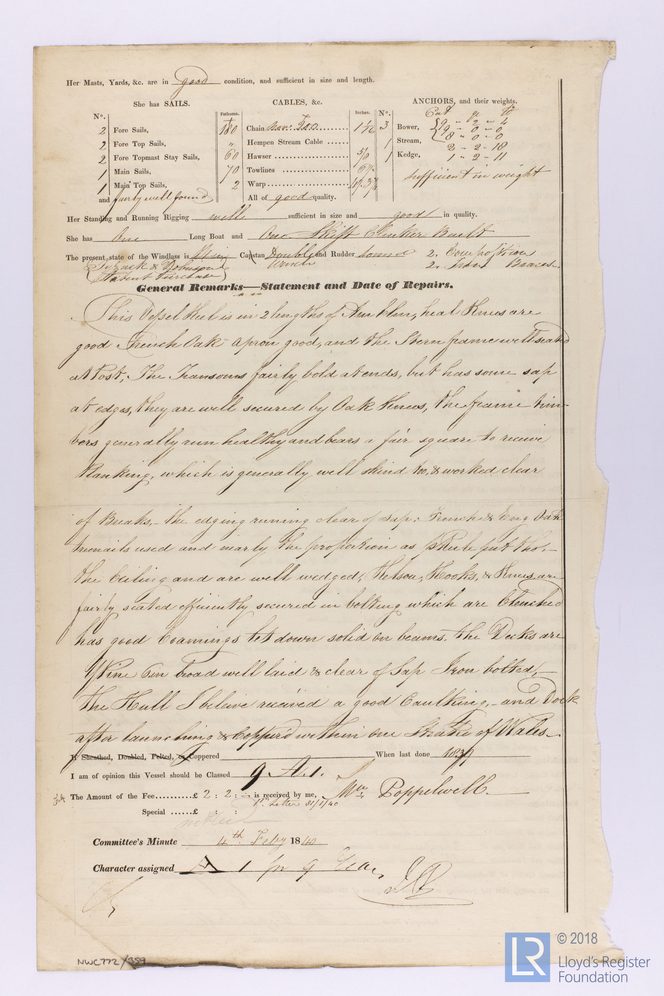 Her Masts, Yards, &c. are in good condition, and sufficient in size and length.
She has SAILS. CABLES, &c. ANCHORS, and their weights.
N°. Fathoms. Inches. N°. Cwt qr lb
2 Fore Sails, 180 Chain 1½ 3 Bower, 9 - 2 - 4
2 Fore Top Sails, " Hempen Stream Cable 9 - 0 - 0
2 Fore Topmast Stay Sails, 60 Hawser 1 Stream, 8 - 0 - 0
1 Main Sails, 70 Towlines 2 - 2 - 18
1 Main Top Sails, 2 Warp 1 Kedge, 1 - 2 - 11
and fairly well found All of good quality. sufficient in weight
Her Standing and Running Rigging well sufficient in size and good in quality.
She has One Long Boat and One Skiff Clinker Built
The present state of the Windlass is Capstan Double and Rudder Sound 2. Composition
Winch 2. Iron Braces
Patent Purchase
General Remarks—Statement and Date of Repairs.
This Vessel Keel is in 2 lengths of Am Elm, heal Knees are
good French Oak apron good, and the Stern frame well seated
at Post, The Transoms fairly bold at ends, but has some sap
at edges, they are well secured by Oak Knees, The frame tim-
bers generally run healthy and bears a fair square to receive
Planking, which is generally well skind & worked clear
of Breaks, the edging running clear of sap: French & Eng Oak
trenails used and nearly the proportion as p Rule put thro.
the Ceiling and are well wedged, Kelson, Hooks, & Knees are
fairly seated efficiently secured in bolting which are Clenched
has good Coamings let down solid on beams. the Decks are
Y Pine 6in broad well laid & clear of Sap Iron bolted,
The Hull I believe received a good Caulking, and Dock
after launching & Copper'd within one Strake of Wales.
If Sheathed, Doubled, Felted, or Coppered When last done 1839
I am of opinion this Vessel should be Classed 9. A. 1.
The Amount of the Fee £ 2 : 2 : - is received by me, Wm Poppelwell.
Special £ : Letter 31/1/40
Committee's Minute 4th Feby 1840
Character assigned A 1 for 9 Years
NWC772/359
© 2018
LR
Lloyd's Register
Foundation